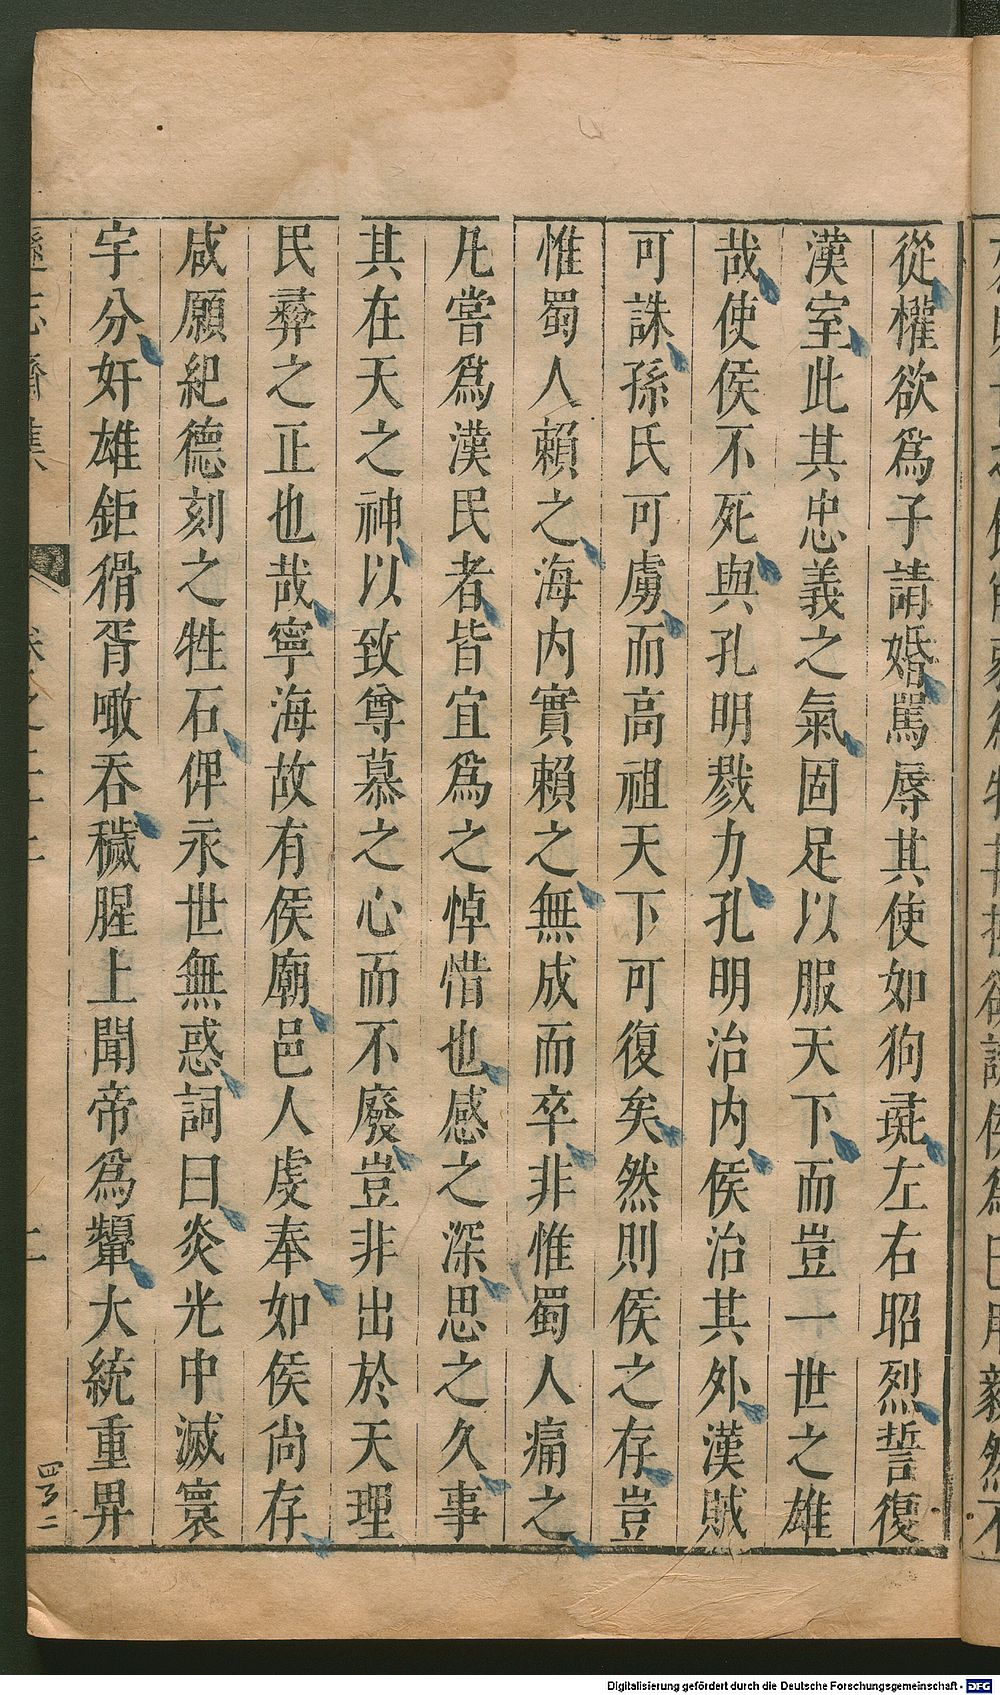 從權欲爲子請婚罵辱其使如狗彘左右昭烈誓復
漢室此其忠義之氣固足以服天下而豈一世之雄
哉使侯不死與孔明戮力孔明治内侯治其外漢賊
可誅孫氏可虜而高祖天下可復矣然則侯之存豈
惟蜀人賴之海内實賴之無成而卒非惟蜀人痛之
凡嘗爲漢民者皆宜爲之悼惜也感之深思之久事
其在天之神以致尊慕之心而不廢豈非出於天理
民彝之正也哉寧海故有侯廟邑人虔奉如侯尚存
咸願紀德刻之牲石俾永世無惑詞曰炎光中滅寰
宇分奸雄鉅猾胥噉吞穢腥上聞帝爲顰大統重畀
遜志齋集
卷之二十二
Digitalisierung gefördert durch die Deutsche Forschungsgemeinschaft - DFG